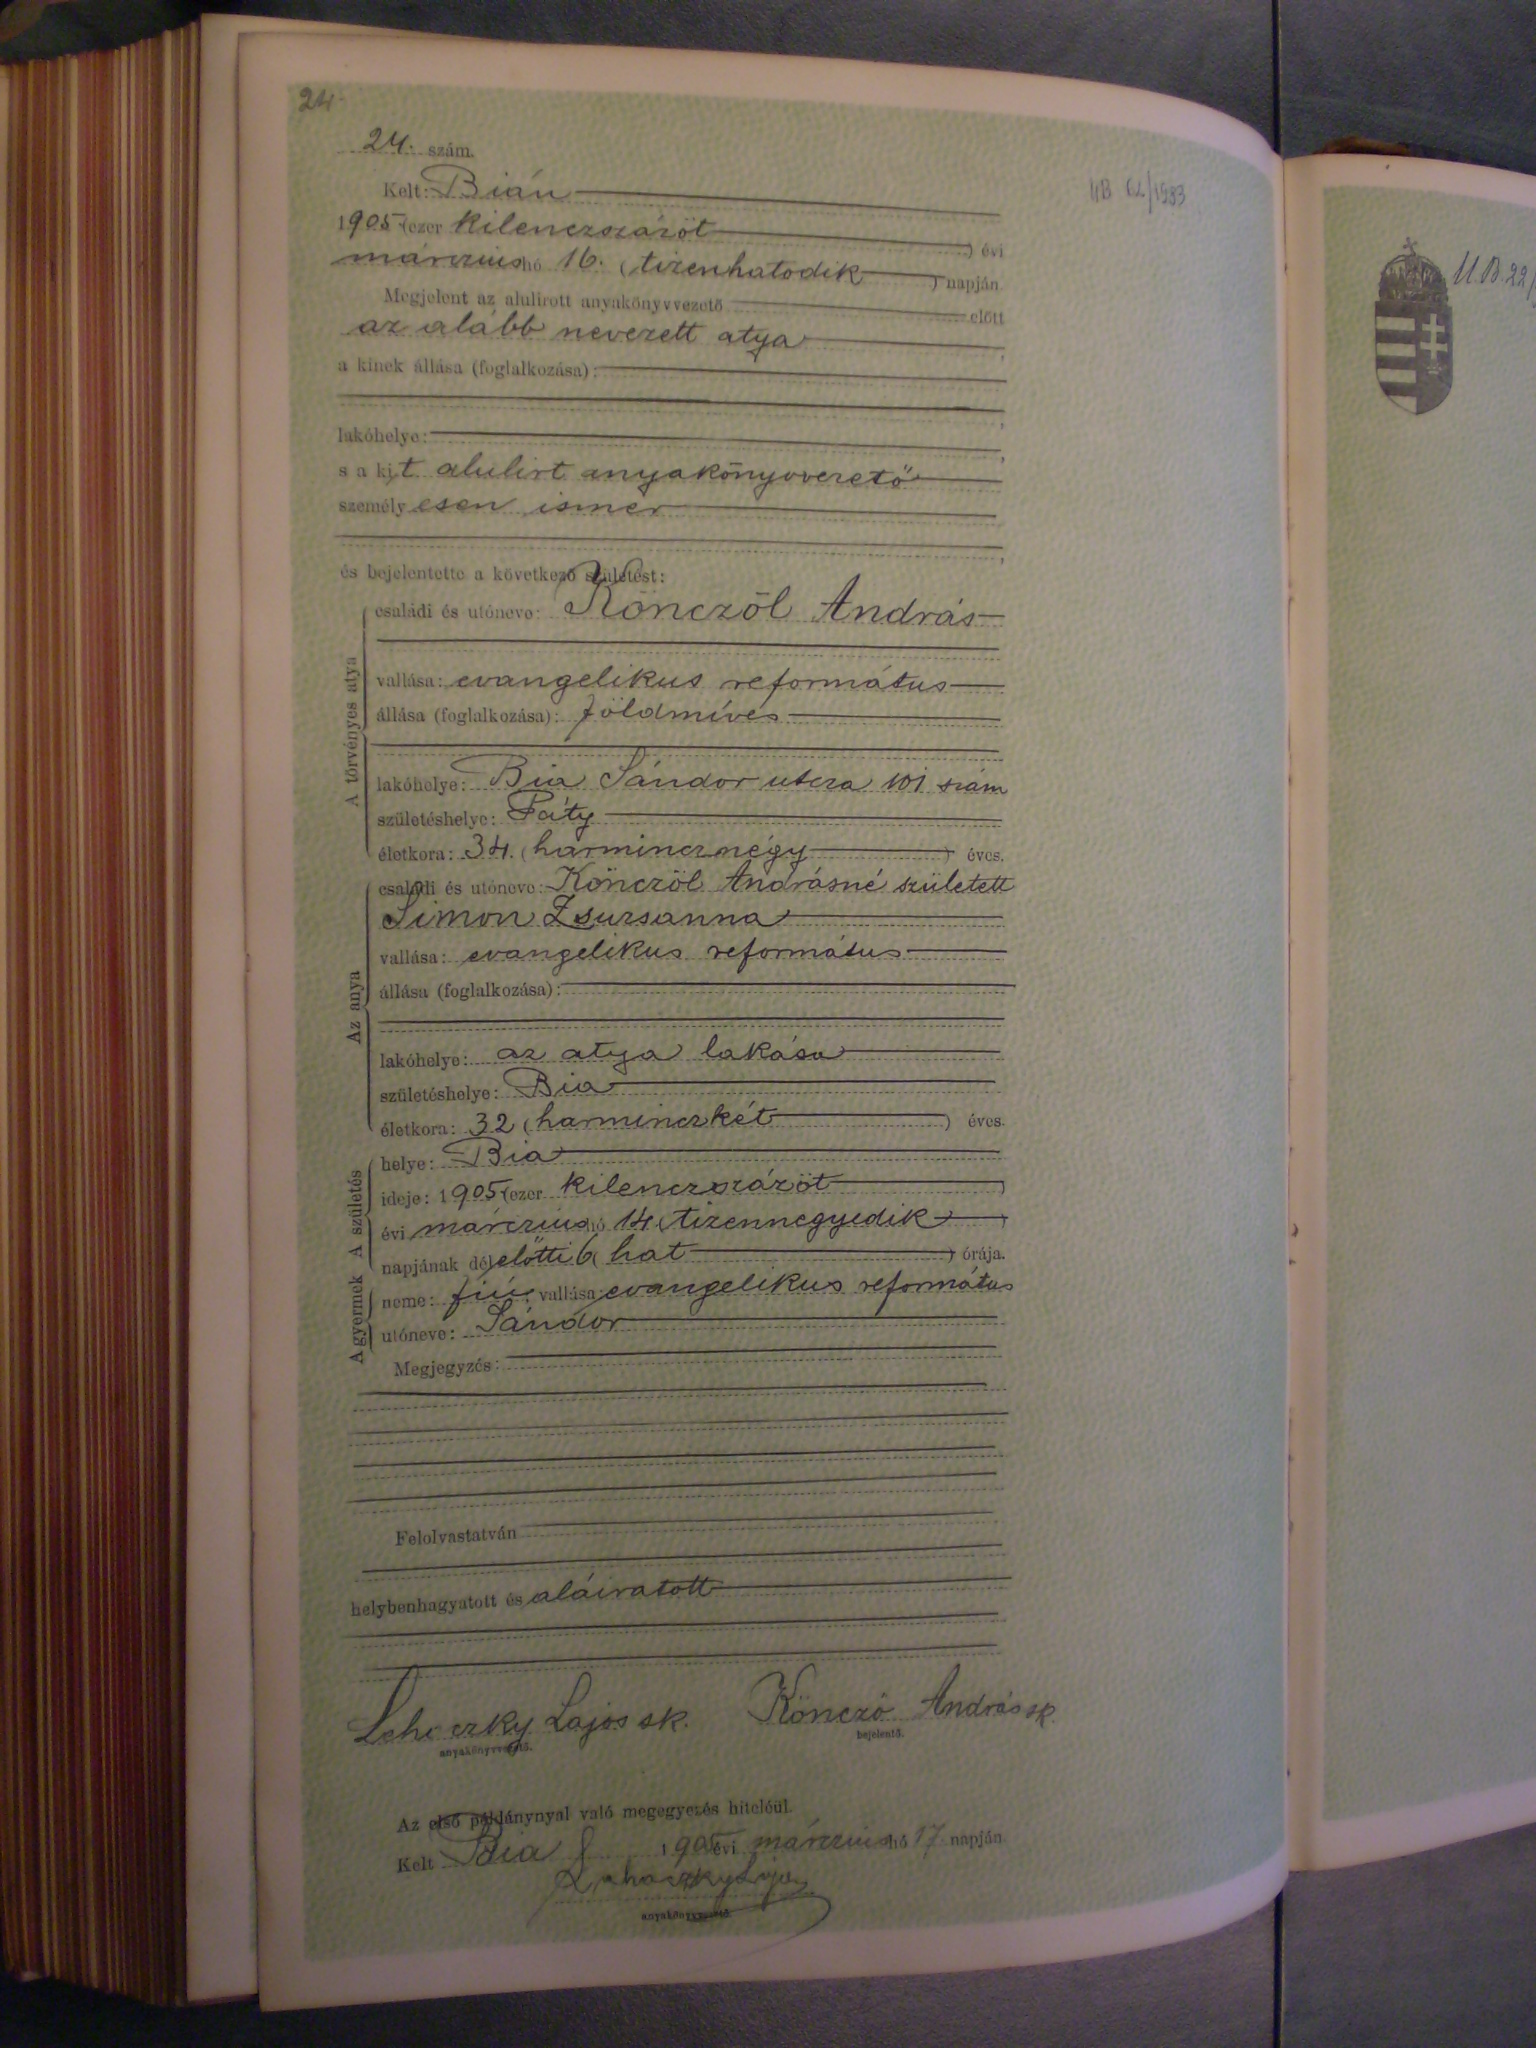 24.
24. szám.
Kelt: Bián
1905 (ezer kilenczszázöt ) évi
márczius hó 16. (tizenhatodik ) napján
Megjelent az alulirott anyakönyvvezető előtt
az alább nevezett atya ,
a kinek állása (foglalkozása):
lakóhelye: ,
s a kit alulirt anyakönyvvezető
személyesen ismer
,
és bejelentette a következő születést:
A törvényes atya
családi és utóneve: Könczöl András
vallása: evangelikus református
állása (foglalkozása): földmíves
lakóhelye: Bia Sándor utcza 101 szám
születéshelye: Páty
életkora: 34. (harmincznégy ) éves.
Az anya
családi és utóneve: Könczöl Andrásné született
Simon Zsuzsanna
vallása: evangelikus református
állása (foglalkozása):
lakóhelye: az atya lakása
születéshelye: Bia
életkora: 32 (harminczkét ) éves.
A születés
helye: Bia
ideje: 1905 (ezer kilenczszázöt )
évi márczius hó 14 (tizennegyedik )
napjának délelőtti 6 (hat ) órája.
A gyermek
neme: fiú vallása: evangelikus református
utóneve: Sándor
Megjegyzés:
Felolvastatván
helybenhagyatott és aláiratott
Lajos sk. Könczö András sk.
anyakönyvvezető. bejelentő.
Az első példánynyal való megegyezés hiteléül.
Kelt Bia 1905 évi márczius hó 17 napján
anyakönyvvezető.
UB 62/1933
U.B. 22/